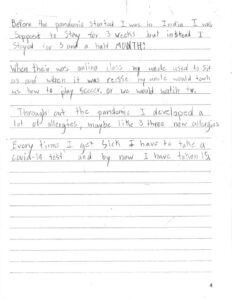 Before the pandemic started I was in India I was
Suppost to Stay for 3 weeks but instead I
Stayed for 5 and a half MONTH!
When their was online class my uncle used to sit
us and when it was recsse my uncle would teach
us how to play Soccer or we would watch tv.
Through out the pandemic I developed a
lot of allergies, maybe like 3 three new allergies
Every time I get sick I have to take a
covid-19 test and by now I have taken 15
4